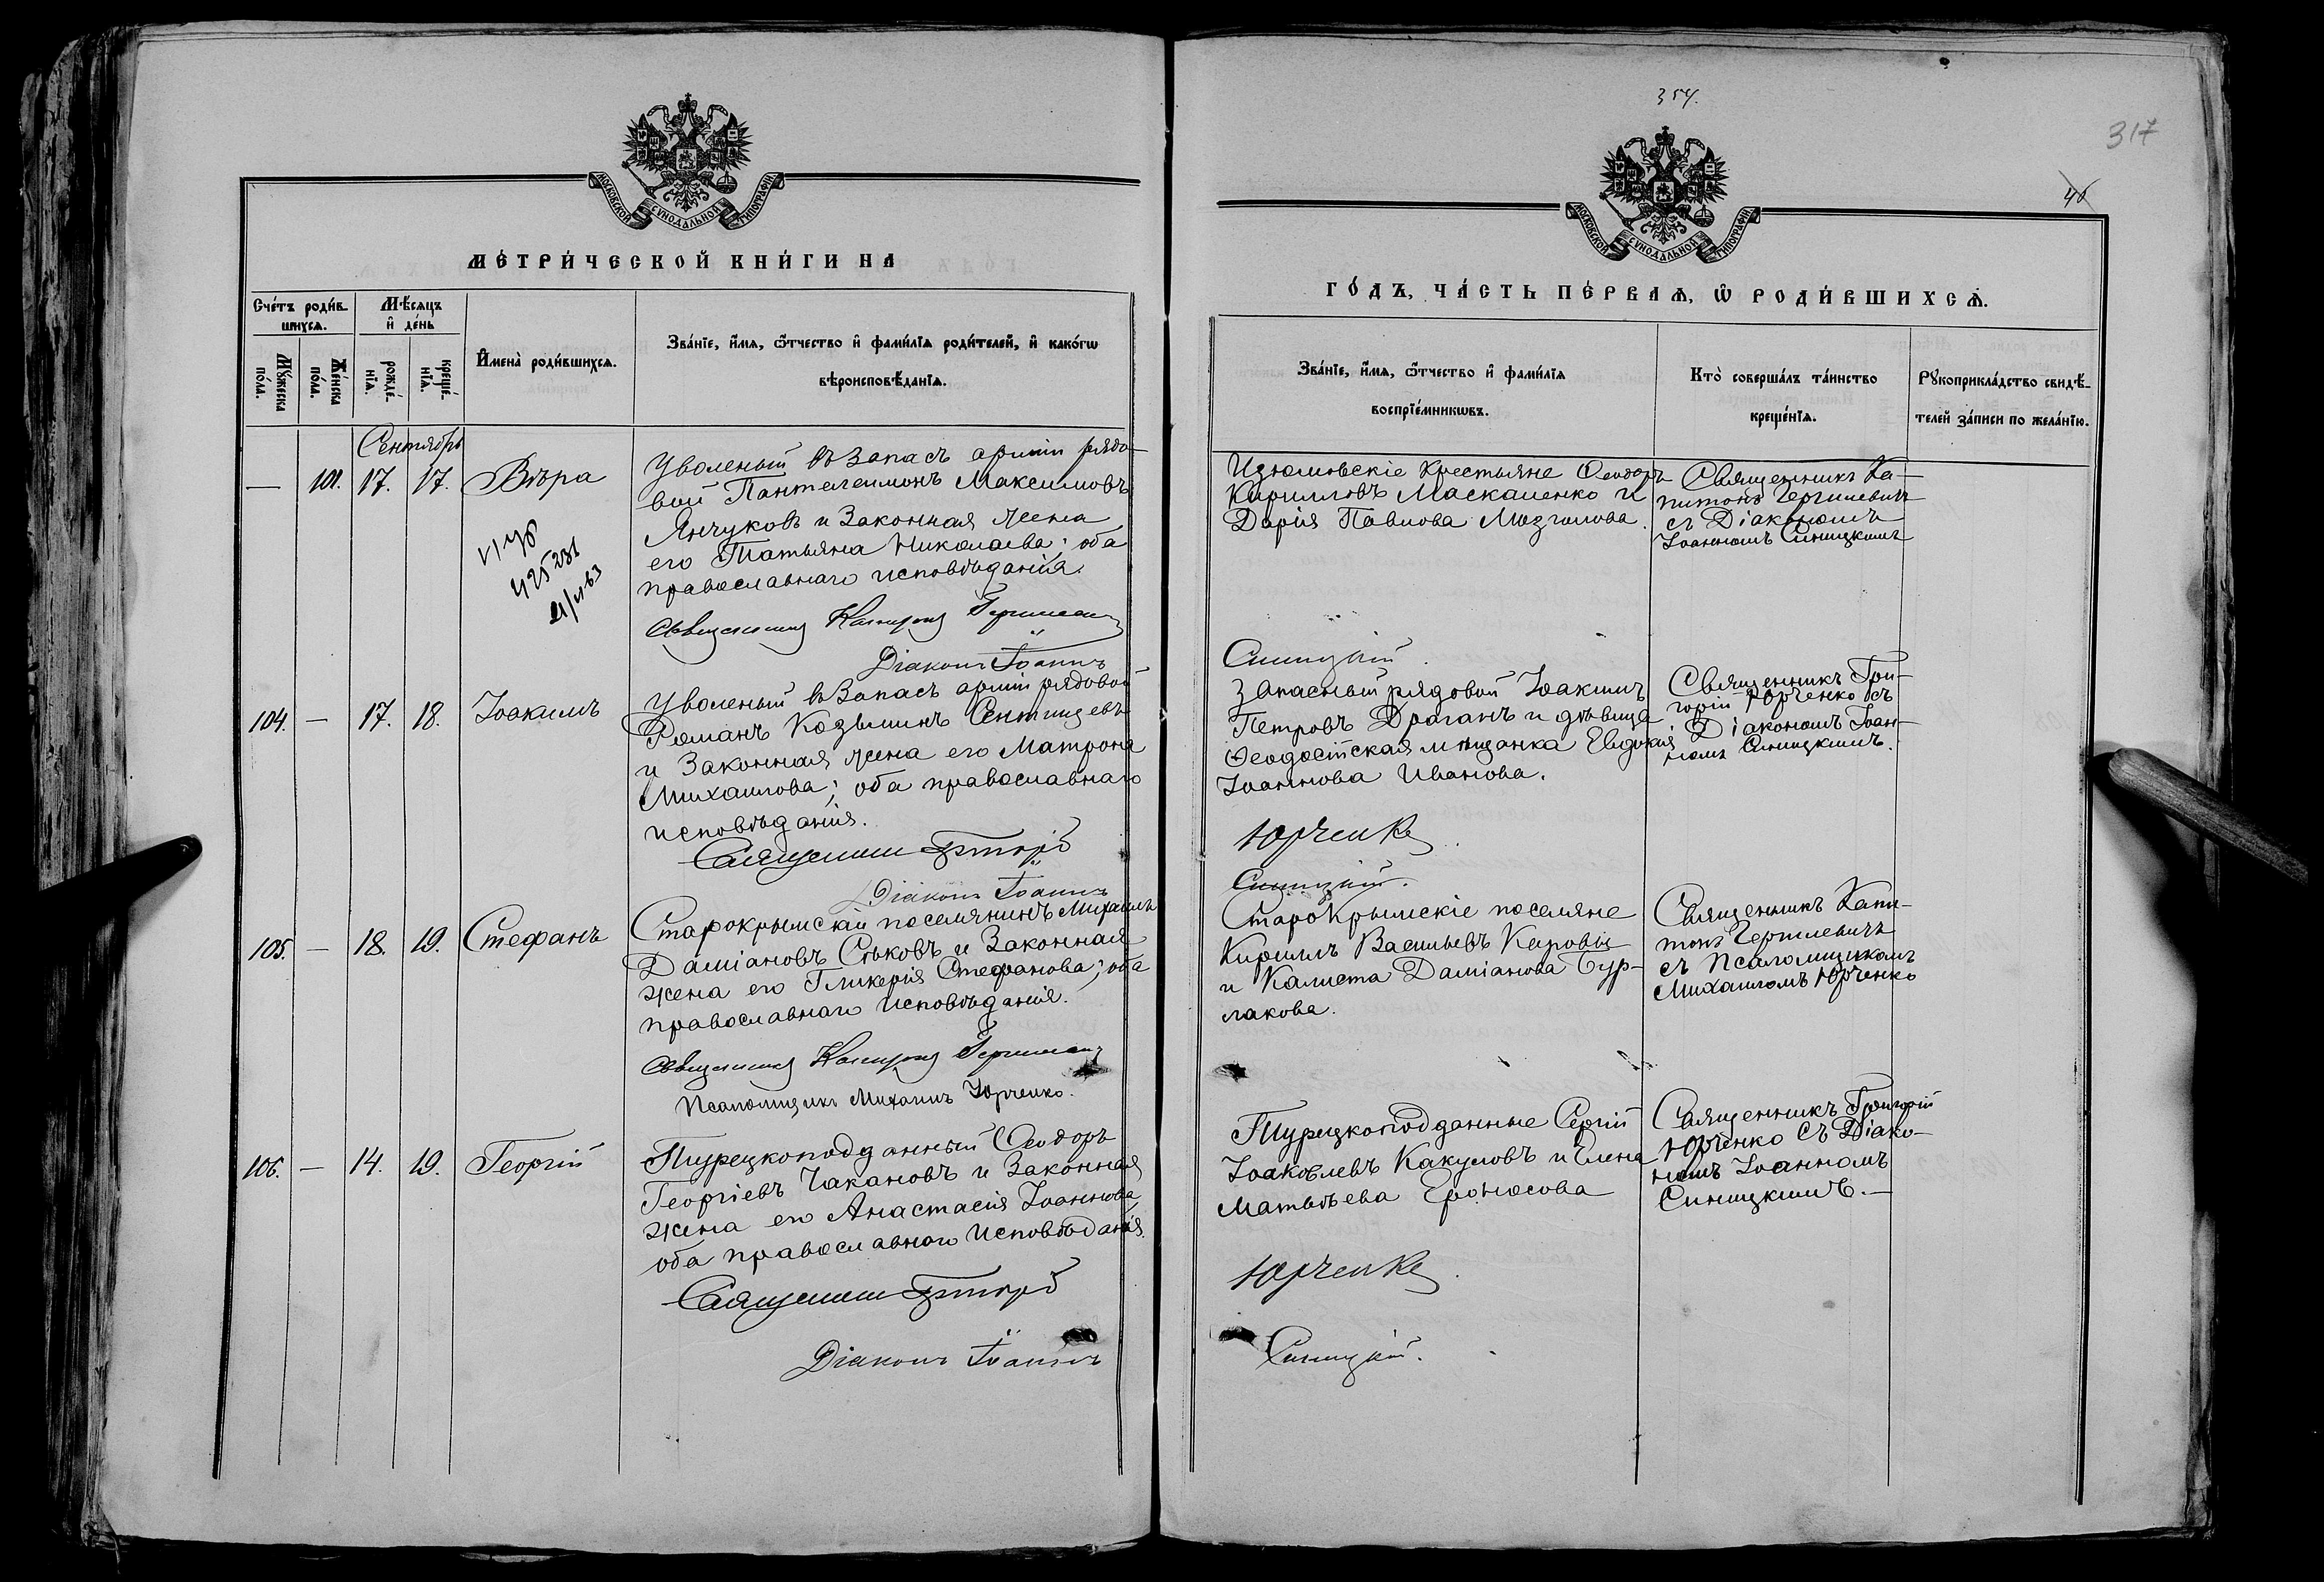 МОСКОВСКОЙ СѴНОДАЛЬНОЙ ТИПОГРАФІИ
МЕТРИ́ЧЕСКОЙ КНИ́ГИ НА
Сче́тъ роди́вшихсѧ.
Мѣ́сѧцъ и҆ де́нь
Мꙋ́жеска по́ла.
Же́нска по́ла.
рожде́нїѧ.
креще́нїѧ.
И҆мена̀ роди́вшихсѧ.
Зва́нїе, и҆́мѧ, ѻ҆́тчество и҆ фами́лїѧ роди́телей, и҆ како́гѡ
вѣроисповѣ́данїѧ.
Сентябрь
— 101. 17. 17. Вѣра
Уволеный въ запасъ арміи рядо-
вой Пантелеимонъ Максимовъ
Янчуковъ и законная жена
его Татьяна Николаева; оба
православнаго исповѣданія.
Священникъ Капитонъ
Діаконъ Іоаннъ
104. — 17. 18. Іоакимъ
Уволеный въ запасъ арміи рядовой
Романъ Козьминъ
и законная жена его Матрона
Михаилова; оба православнаго
исповѣданія.
Священникъ Григорій
Діаконъ Іоаннъ
105. — 18. 19. Стефанъ
Старокрымскій поселянинъ Михаилъ
Даміановъ Сѣковъ и законная
жена его Гликерія Стефанова; оба
православнаго исповѣданія.
Священникъ Капитонъ
Псаломщикъ Михаилъ Юрченко.
106. — 14. 19. Георгій
Турецкоподданный Ѳеодоръ
Георгіевъ Чакановъ и законная
жена его Анастасія Іоаннова,
оба православнаго исповѣданія.
Священникъ Григорій
Діаконъ Іоаннъ
354.
317
40
МОСКОВСКОЙ СѴНОДАЛЬНОЙ ТИПОГРАФІИ
ГО́ДЪ, ЧА́СТЬ ПЕ́РВАѦ, Ѡ҆ РОДИ́ВШИХСѦ.
Зва́нїе, и҆́мѧ, ѻ҆́тчество и҆ фами́лїѧ
воспрїе́мникѡвъ.
Кто̀ соверша́лъ та́инство
креще́нїѧ.
Рꙋкоприкла́дство свидѣ́-
телей за́писи по жела́нїю.
Изюмовскіе крестьяне Ѳеодоръ
Кирилловъ Маскаленко и
Дарія Павлова Мозголова.
Священникъ Ка-
питонъ Гергилевичъ
съ Діакономъ
Іоанномъ Синицкимъ
Синицкій.
Запасный рядовой Іоакимъ
Петровъ Драганъ и дѣвица
Ѳеодосійская мѣщанка Евдокія
Іоаннова Иванова.
Священникъ Гри-
горій Юрченко съ
Діакономъ Іоан-
номъ Синицкимъ.
Юрченко
Синицкій.
Старокрымскіе поселяне
Кириллъ Васильевъ
и Калиста Даміанова Бур-
лакова.
Священникъ Капи-
тонъ Гергилевичъ
съ Псаломщикомъ
Михаиломъ Юрченко
Турецкоподданные Сергій
Іоаковлевъ Какуловъ и Елена
Матвѣева
Священникъ Григорій
Юрченко съ Діако-
номъ Іоанномъ
Синицкимъ.—
Юрченко.
Синицкій.